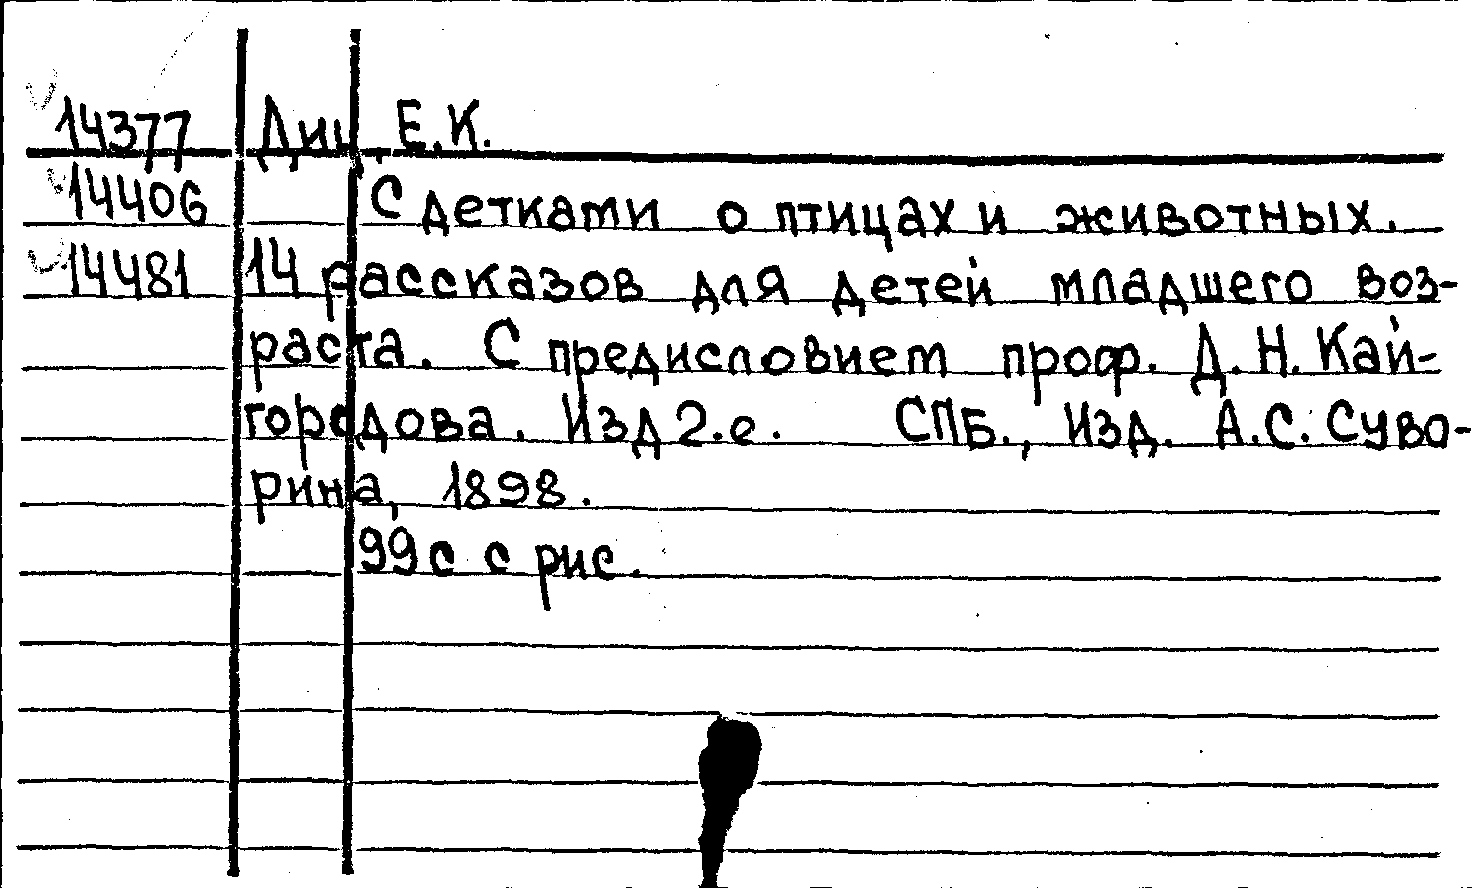 14377 Диц, Е.К.
14406 С детками о птицах и животных.
14481 14 рассказов для детей младшего воз-
раста. С предисловием проф. Д.Н. Кай-
городова. Изд 2.е. СПБ., Изд. А.С. Суво-
рина, 1898.
99 с с рис.